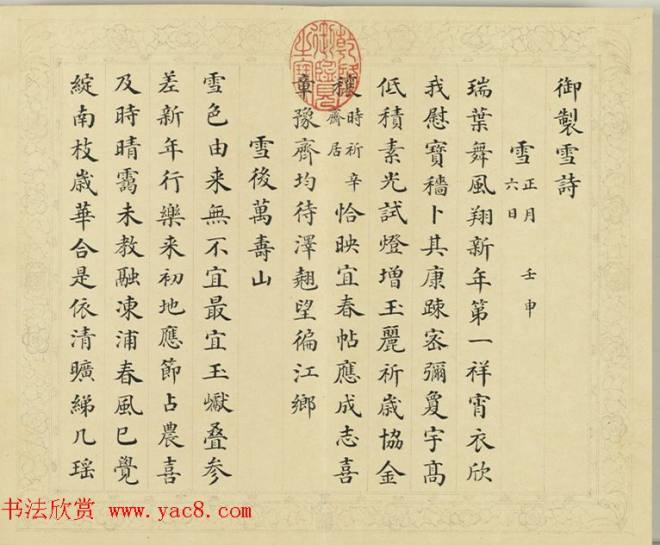 御製雪詩
雪 正月六日 壬申
瑞葉舞風翔新年第一祥宵衣欣
我慰寶穡卜其康疎密彌夐宇高
低積素光試燈增玉麗祈歲協金
穰 時祈辛齋居 恰映宜春帖應成志喜
章豫齊均待澤翹望徧江鄉
雪後萬壽山
雪色由来無不宜最宜玉巘叠参
差新年行樂来初地應節占農喜
及時晴靄未教融凍浦春風已覺
綻南枝歲華合是依清曠綈几瑶
乾隆御覽之寶
书法欣赏 www.yac8.com